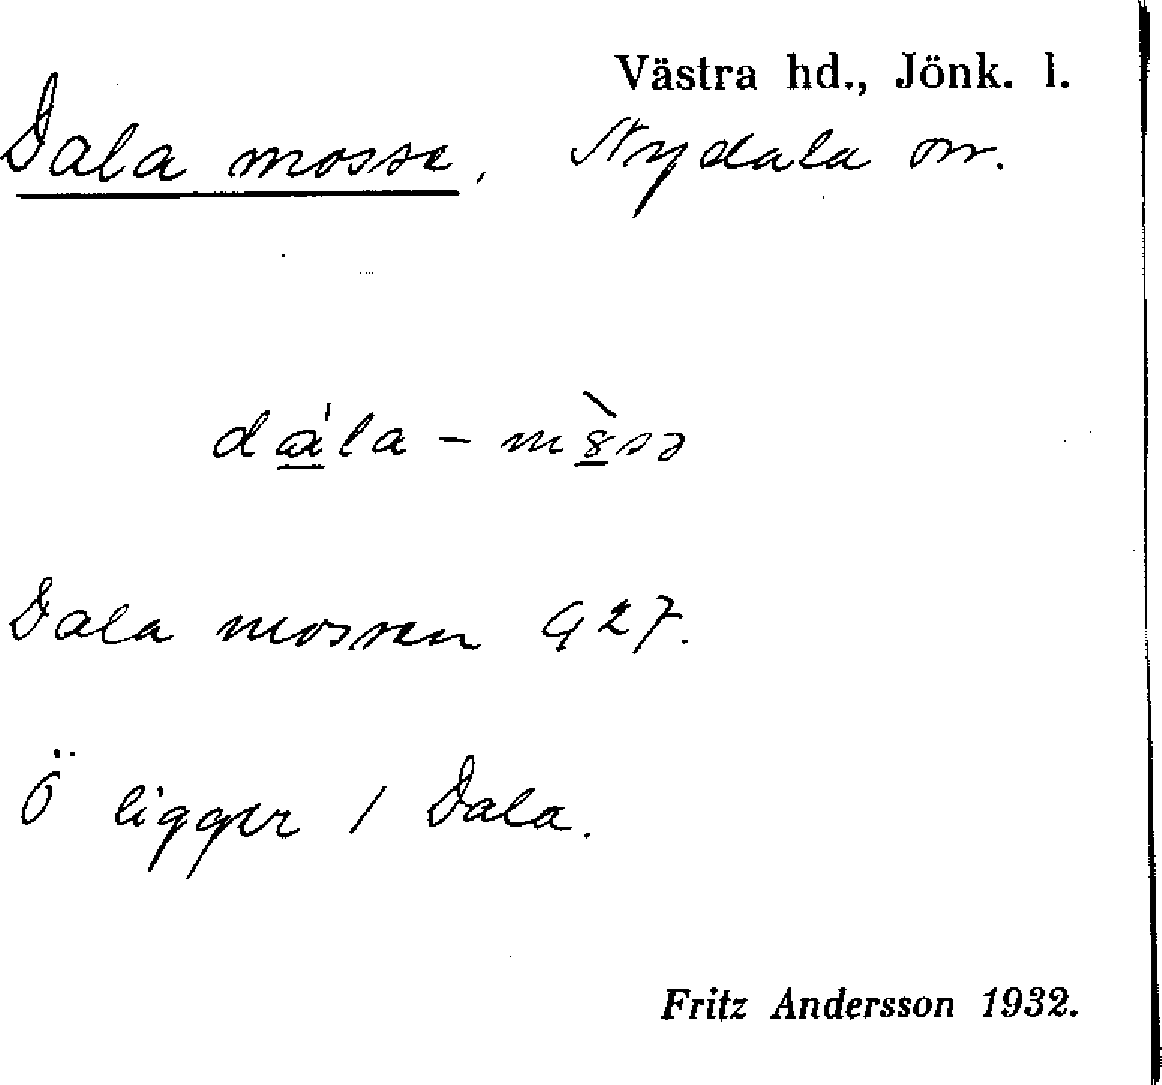 Västra hd., Jönk. l.
Dala mosse. Nydala sn.
dála - m8̀sə
Dala mossen G27.
Ö ligger / Dala.
Fritz Andersson 1932.